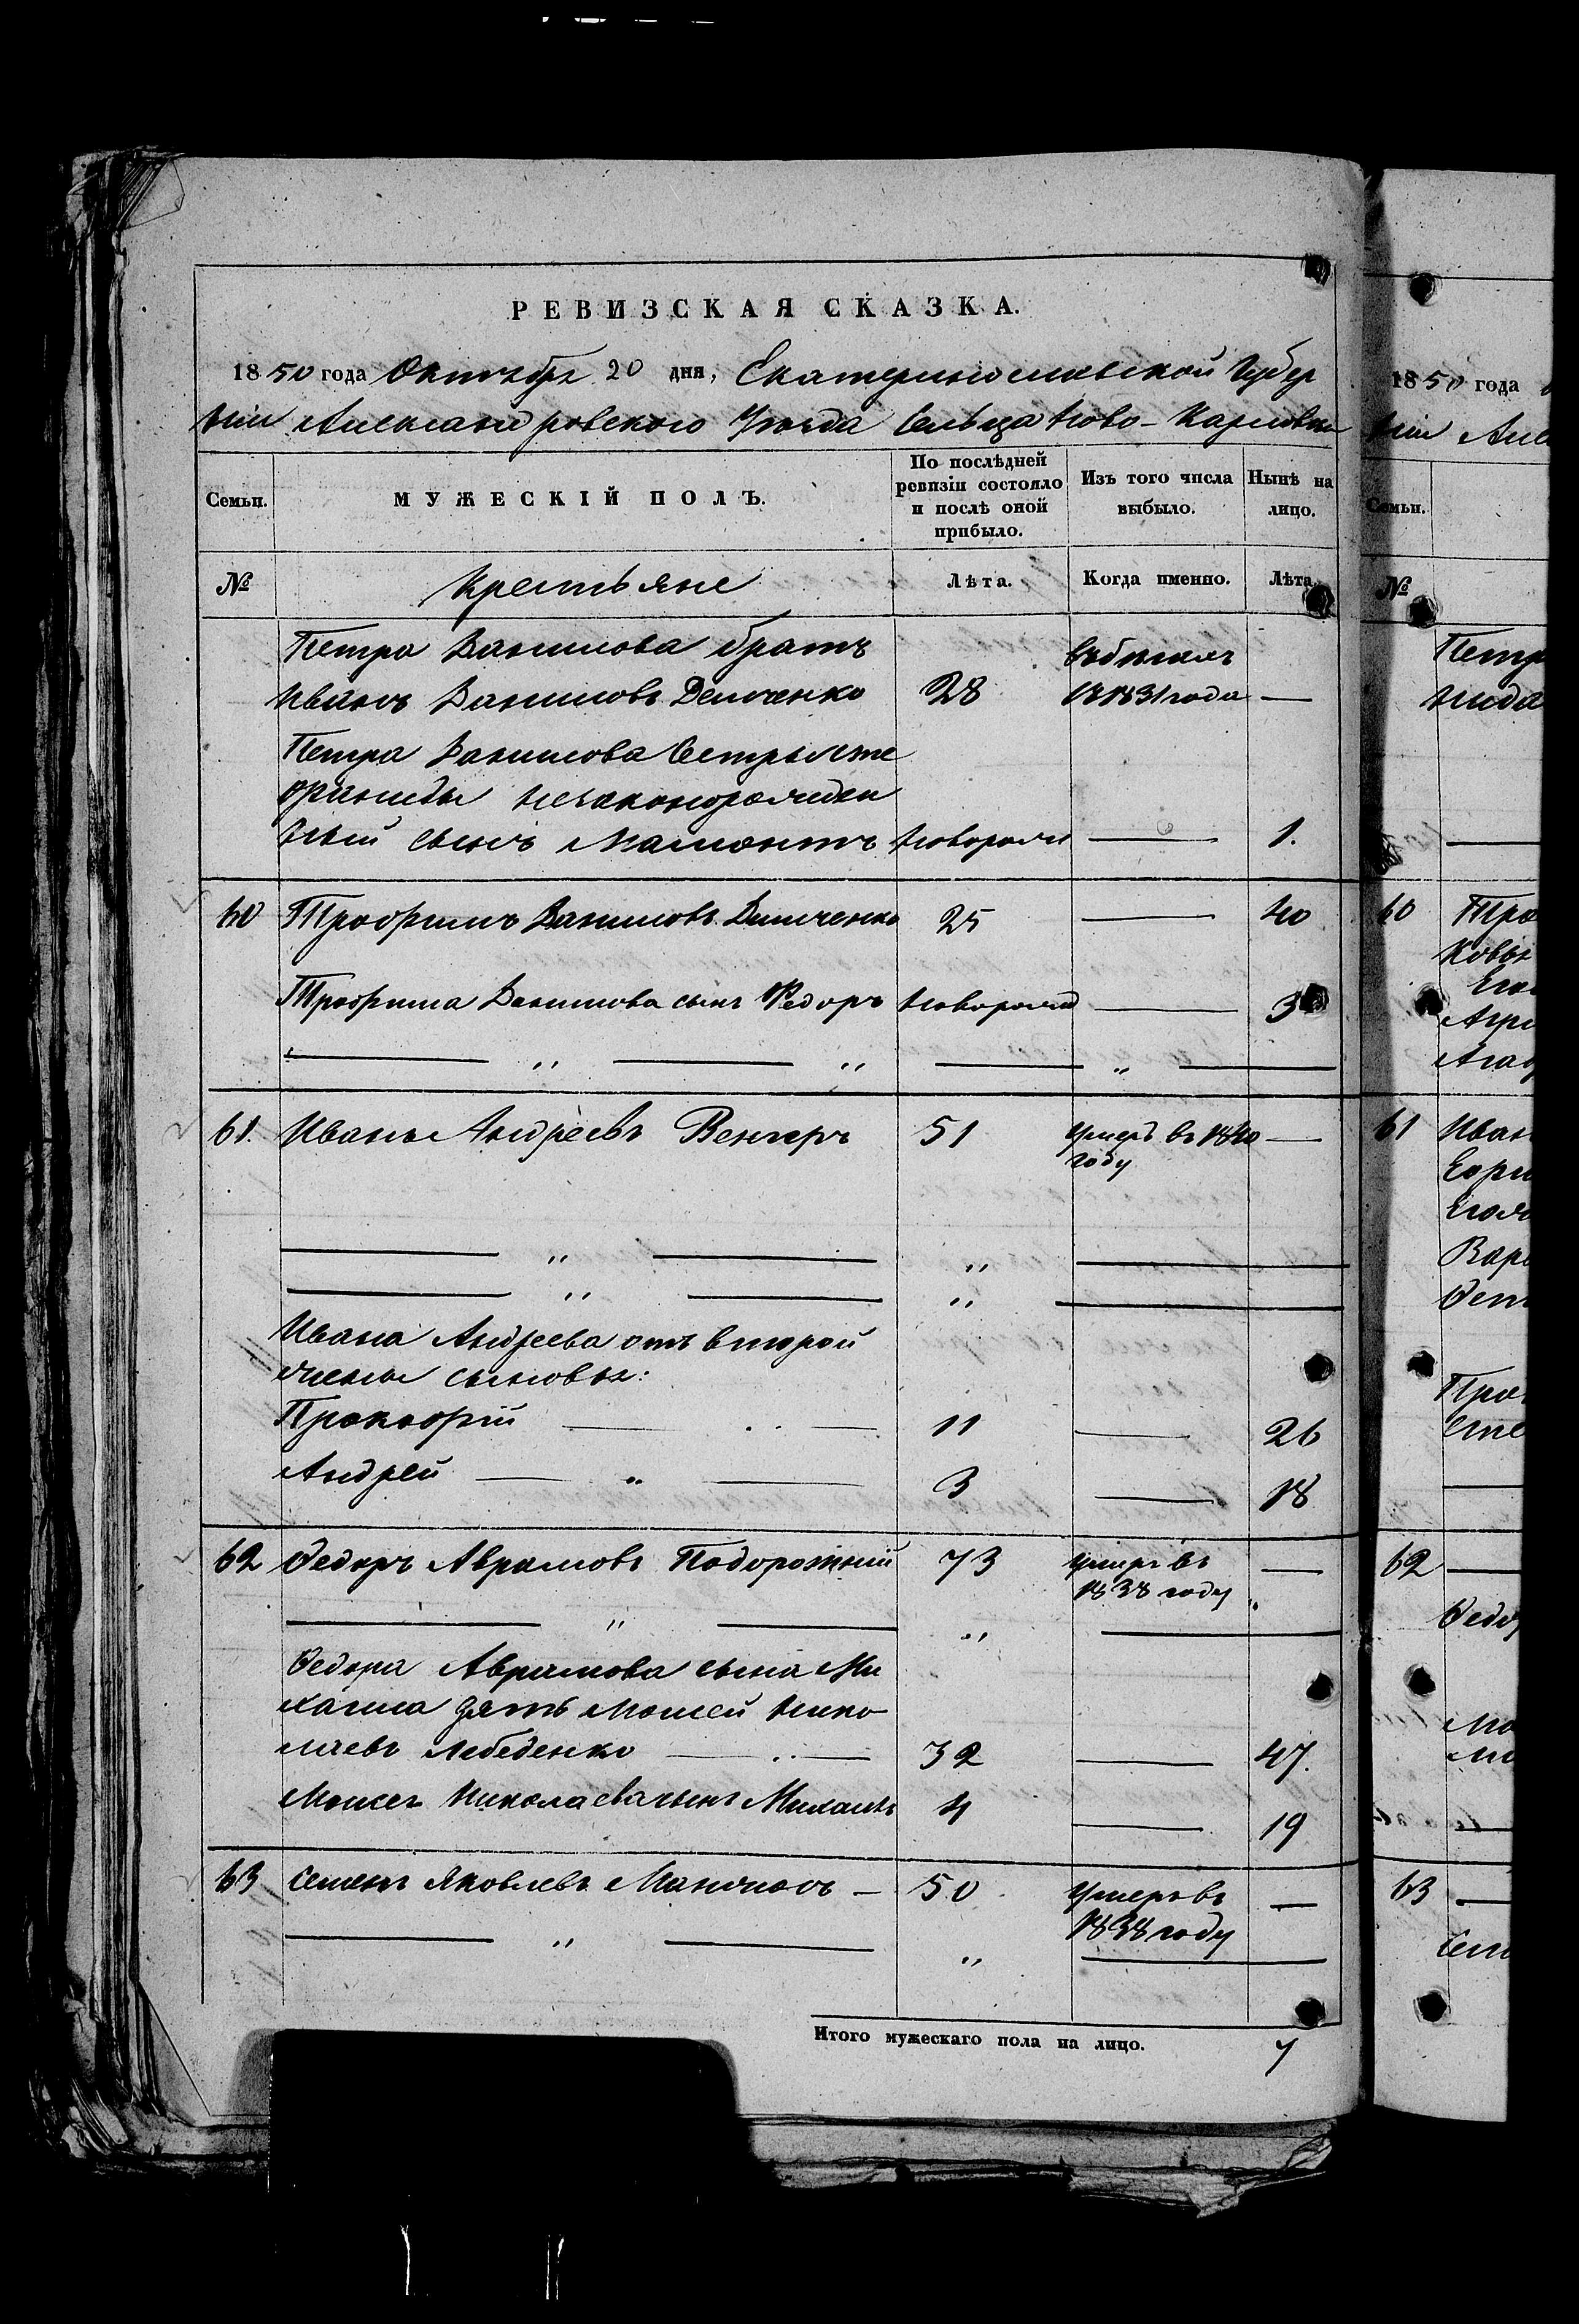 РЕВИЗСКАЯ СКАЗКА.
1850 года Октября 20 дня, Екатеринославской Губер
ніи Александровского Уѣзда Сельца Ново-Карловки
Семьи. МУЖЕСКІЙ ПОЛЪ. По послѣдней ревизіи состояло и послѣ оной прибыло. Изъ того числа выбыло. Нынѣ на лицо.
№ Крестьяне Лѣта. Когда именно. Лѣта.
Петра Данилова братъ
Иванъ Даниловъ Демченко 28 въ бѣгахъ 1831 года —
Петра Данилова Сестры
незаконорожден
ный сынъ Мамонтъ новорожд — 1.
60 Трофимъ Даниловъ Демченко 25 — 40
Трофима Данилова сынъ Федоръ новорожд — 3
— „ — „ — „ —
61. Иванъ Андреевъ Венгеръ 51 умеръ въ 1840 году —
— „ — „ —
— „ — „ —
Ивана Андреева отъ второй
жены сыновья:
Прокофій — 11 — 26
Андрей — „ — 3 — 18
62 Федоръ Аврамовъ Подорожній 73 умеръ въ 1838 году —
— „ — „ —
Федора Аврамова сына Ми
хаила зять Моисей Нико
лаевъ Лебеденко — 32 — 47.
Моисея Николаева сынъ Михаилъ 4 — 19
63 Семенъ Яковлевъ — 50 Умеръ въ 1838 году —
— „ — „ —
Итого мужескаго пола на лицо. 7
1850 года
ніи Але
Семьи.
№
Петр
60 Тро
61 Иван
62 —
Федо
63 —
Сем